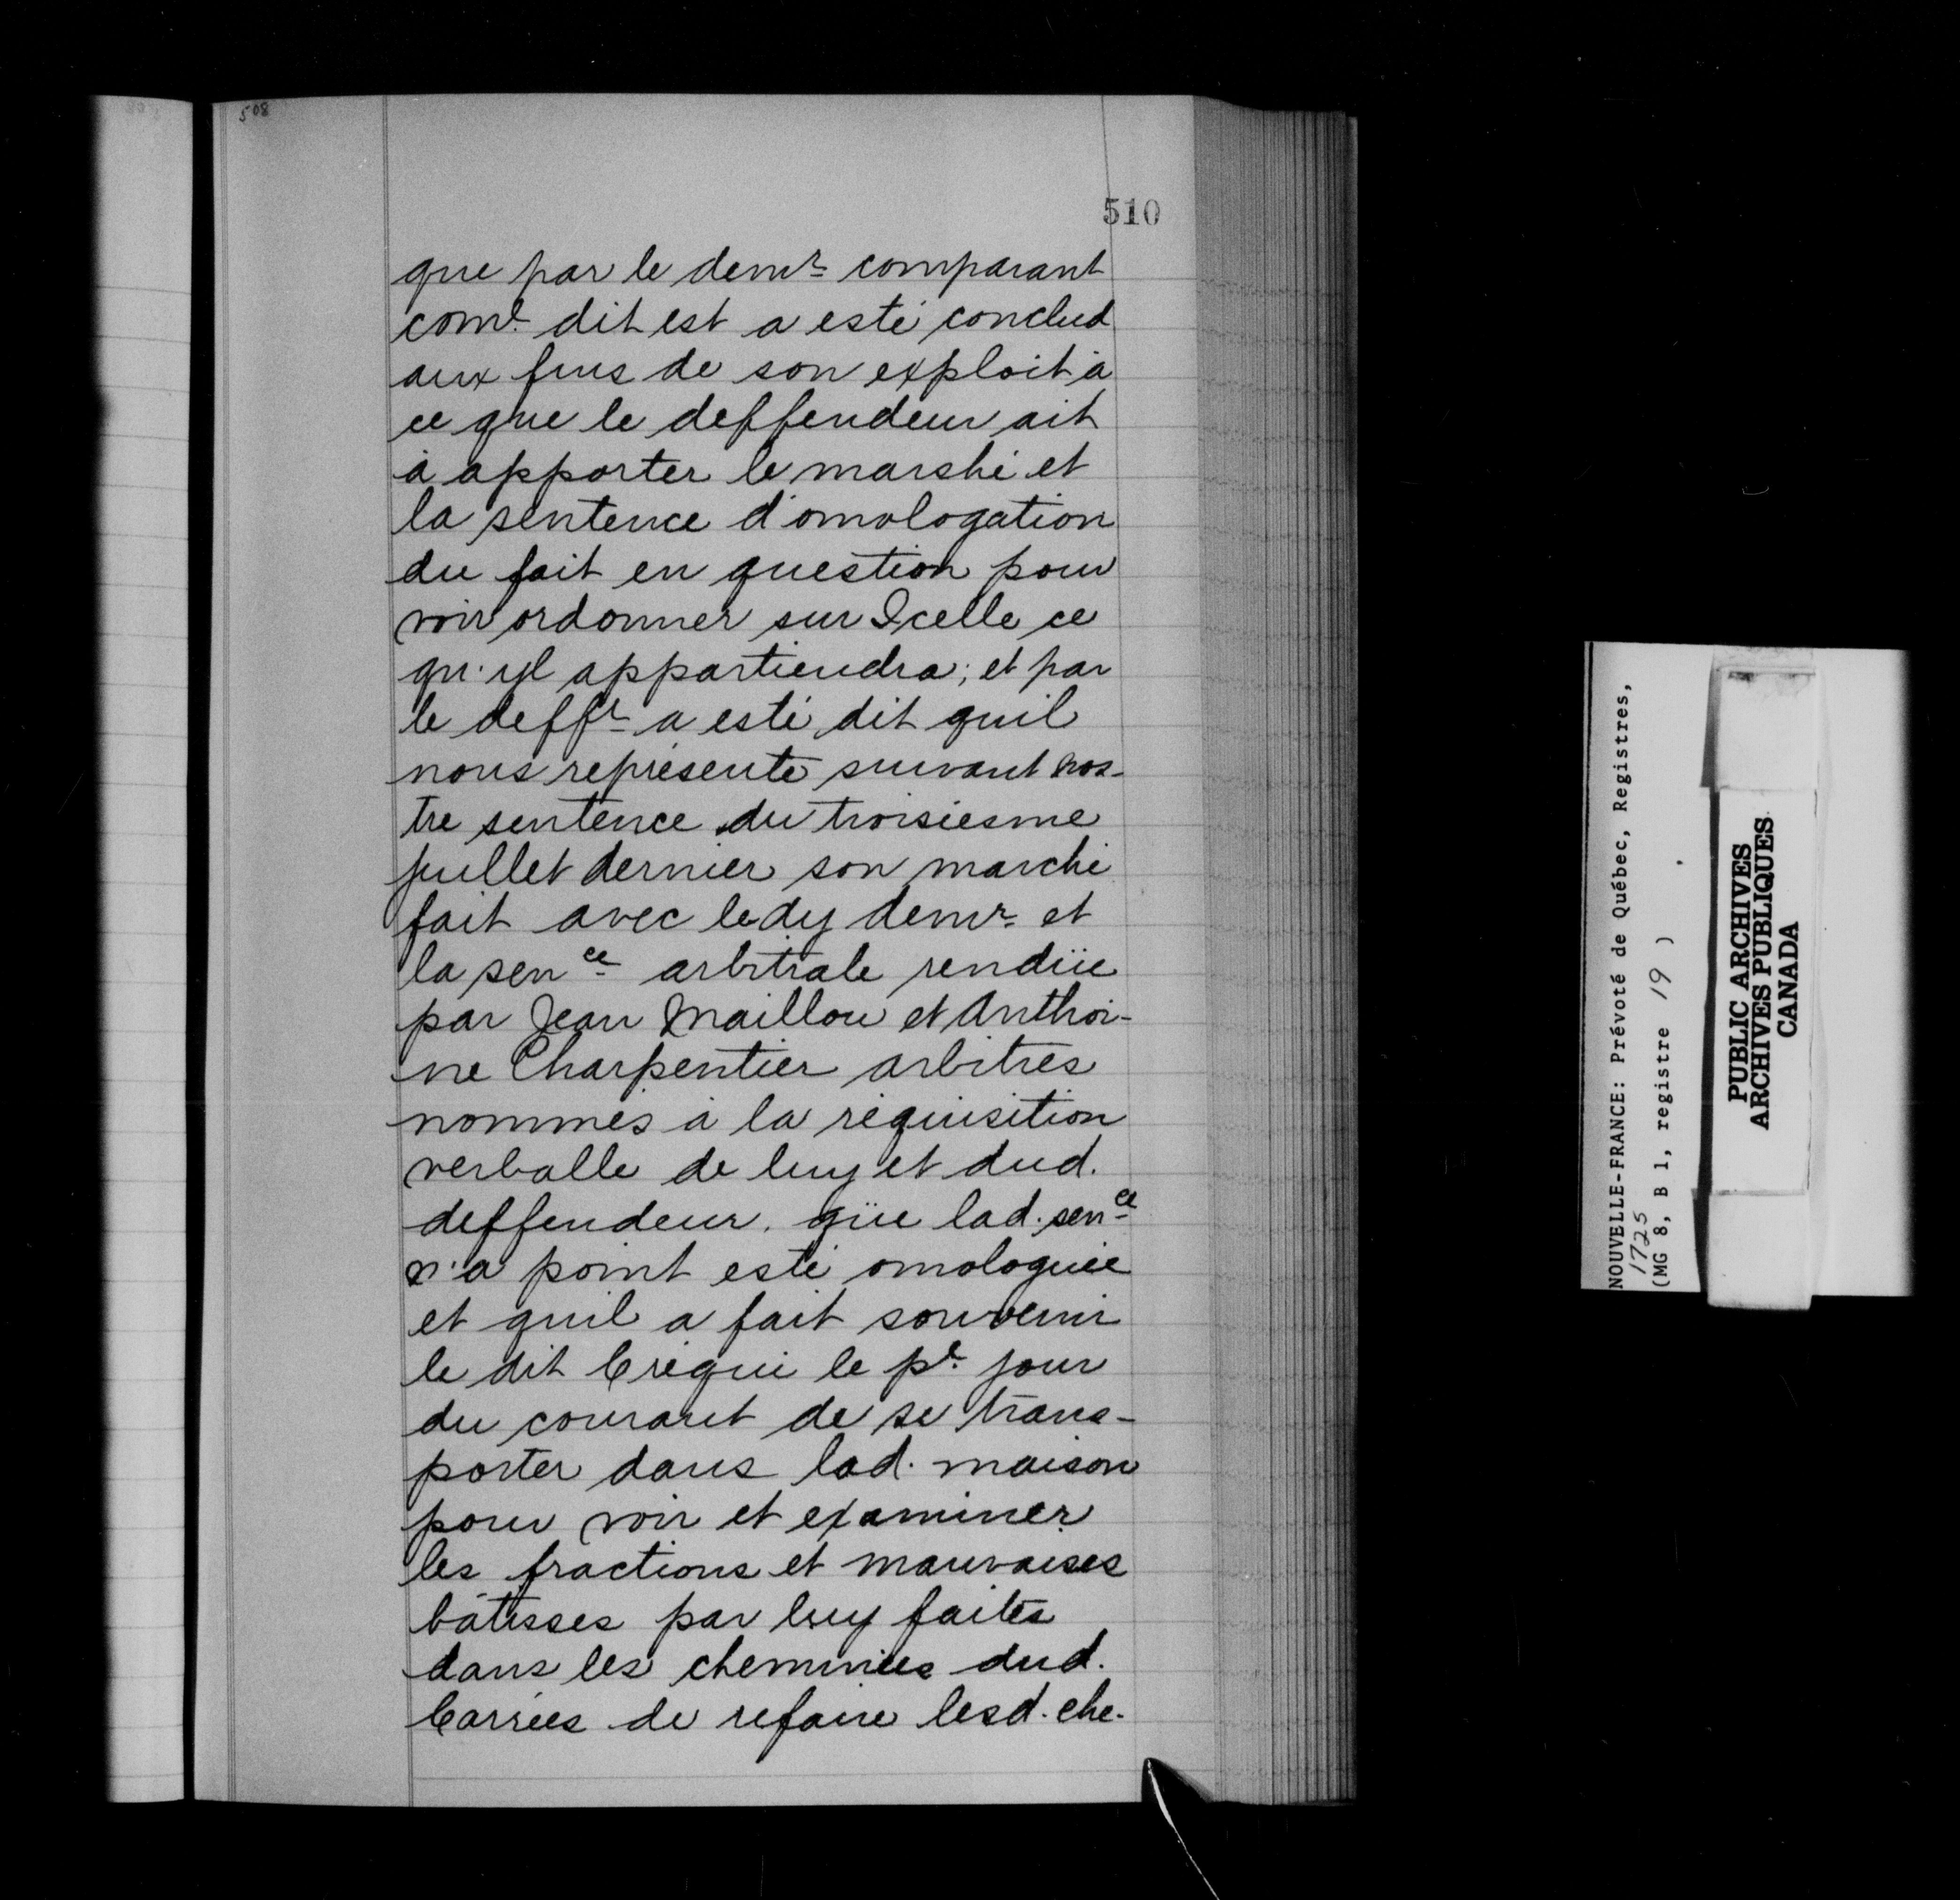 508
510
que par le demr comparant
come dit est a esté conclud
aux fins de son exploit à
ce que le deffendeur ait
à apporter le marshé et
la sentence d'omologation
du fait en question pour
voir ordonner sur Icelle ce
qu'yl appartiendra; et par
le deffr a esté dit quil
nous représente suivant nos-
tre sentence du troisiesme
juillet dernier son marché
fait avec le dy demr et
la sence arbitrale rendüe
par Jean Maillou et Anthoi-
ne Charpentier arbitres
nommés à la réquisition
verballe de luy et dud.
deffendeur. qüe lad. sence
n'a point esté omologuée
et quil a fait souvenir
le dit Créqui le pe jour
du courant de se trans-
porter dans lad. maison
pour voir et examiner
les fractions et mauvaises
bâtisses par luy faites
dans les cheminées dud.
Carrées de refaire lesd. che-
NOUVELLE-FRANCE: Prévoté de Québec, Registres,
1725
(MG 8, B 1, registre 19 )
PUBLIC ARCHIVES
ARCHIVES PUBLIQUES
CANADA